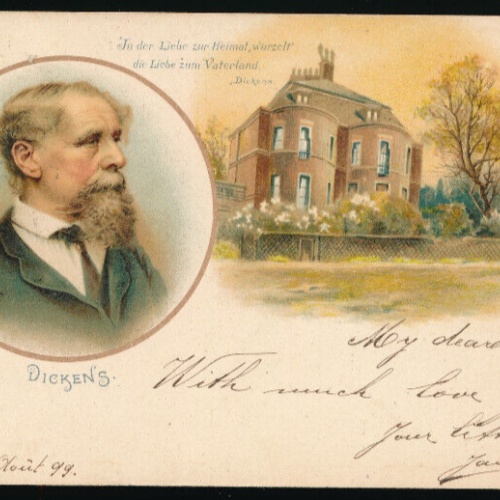 In der Liebe zur Heimat, wurzelt
die Liebe zum Vaterland.
Dickens.
DICKENS.
My dear
With much love
Your
Août 99.